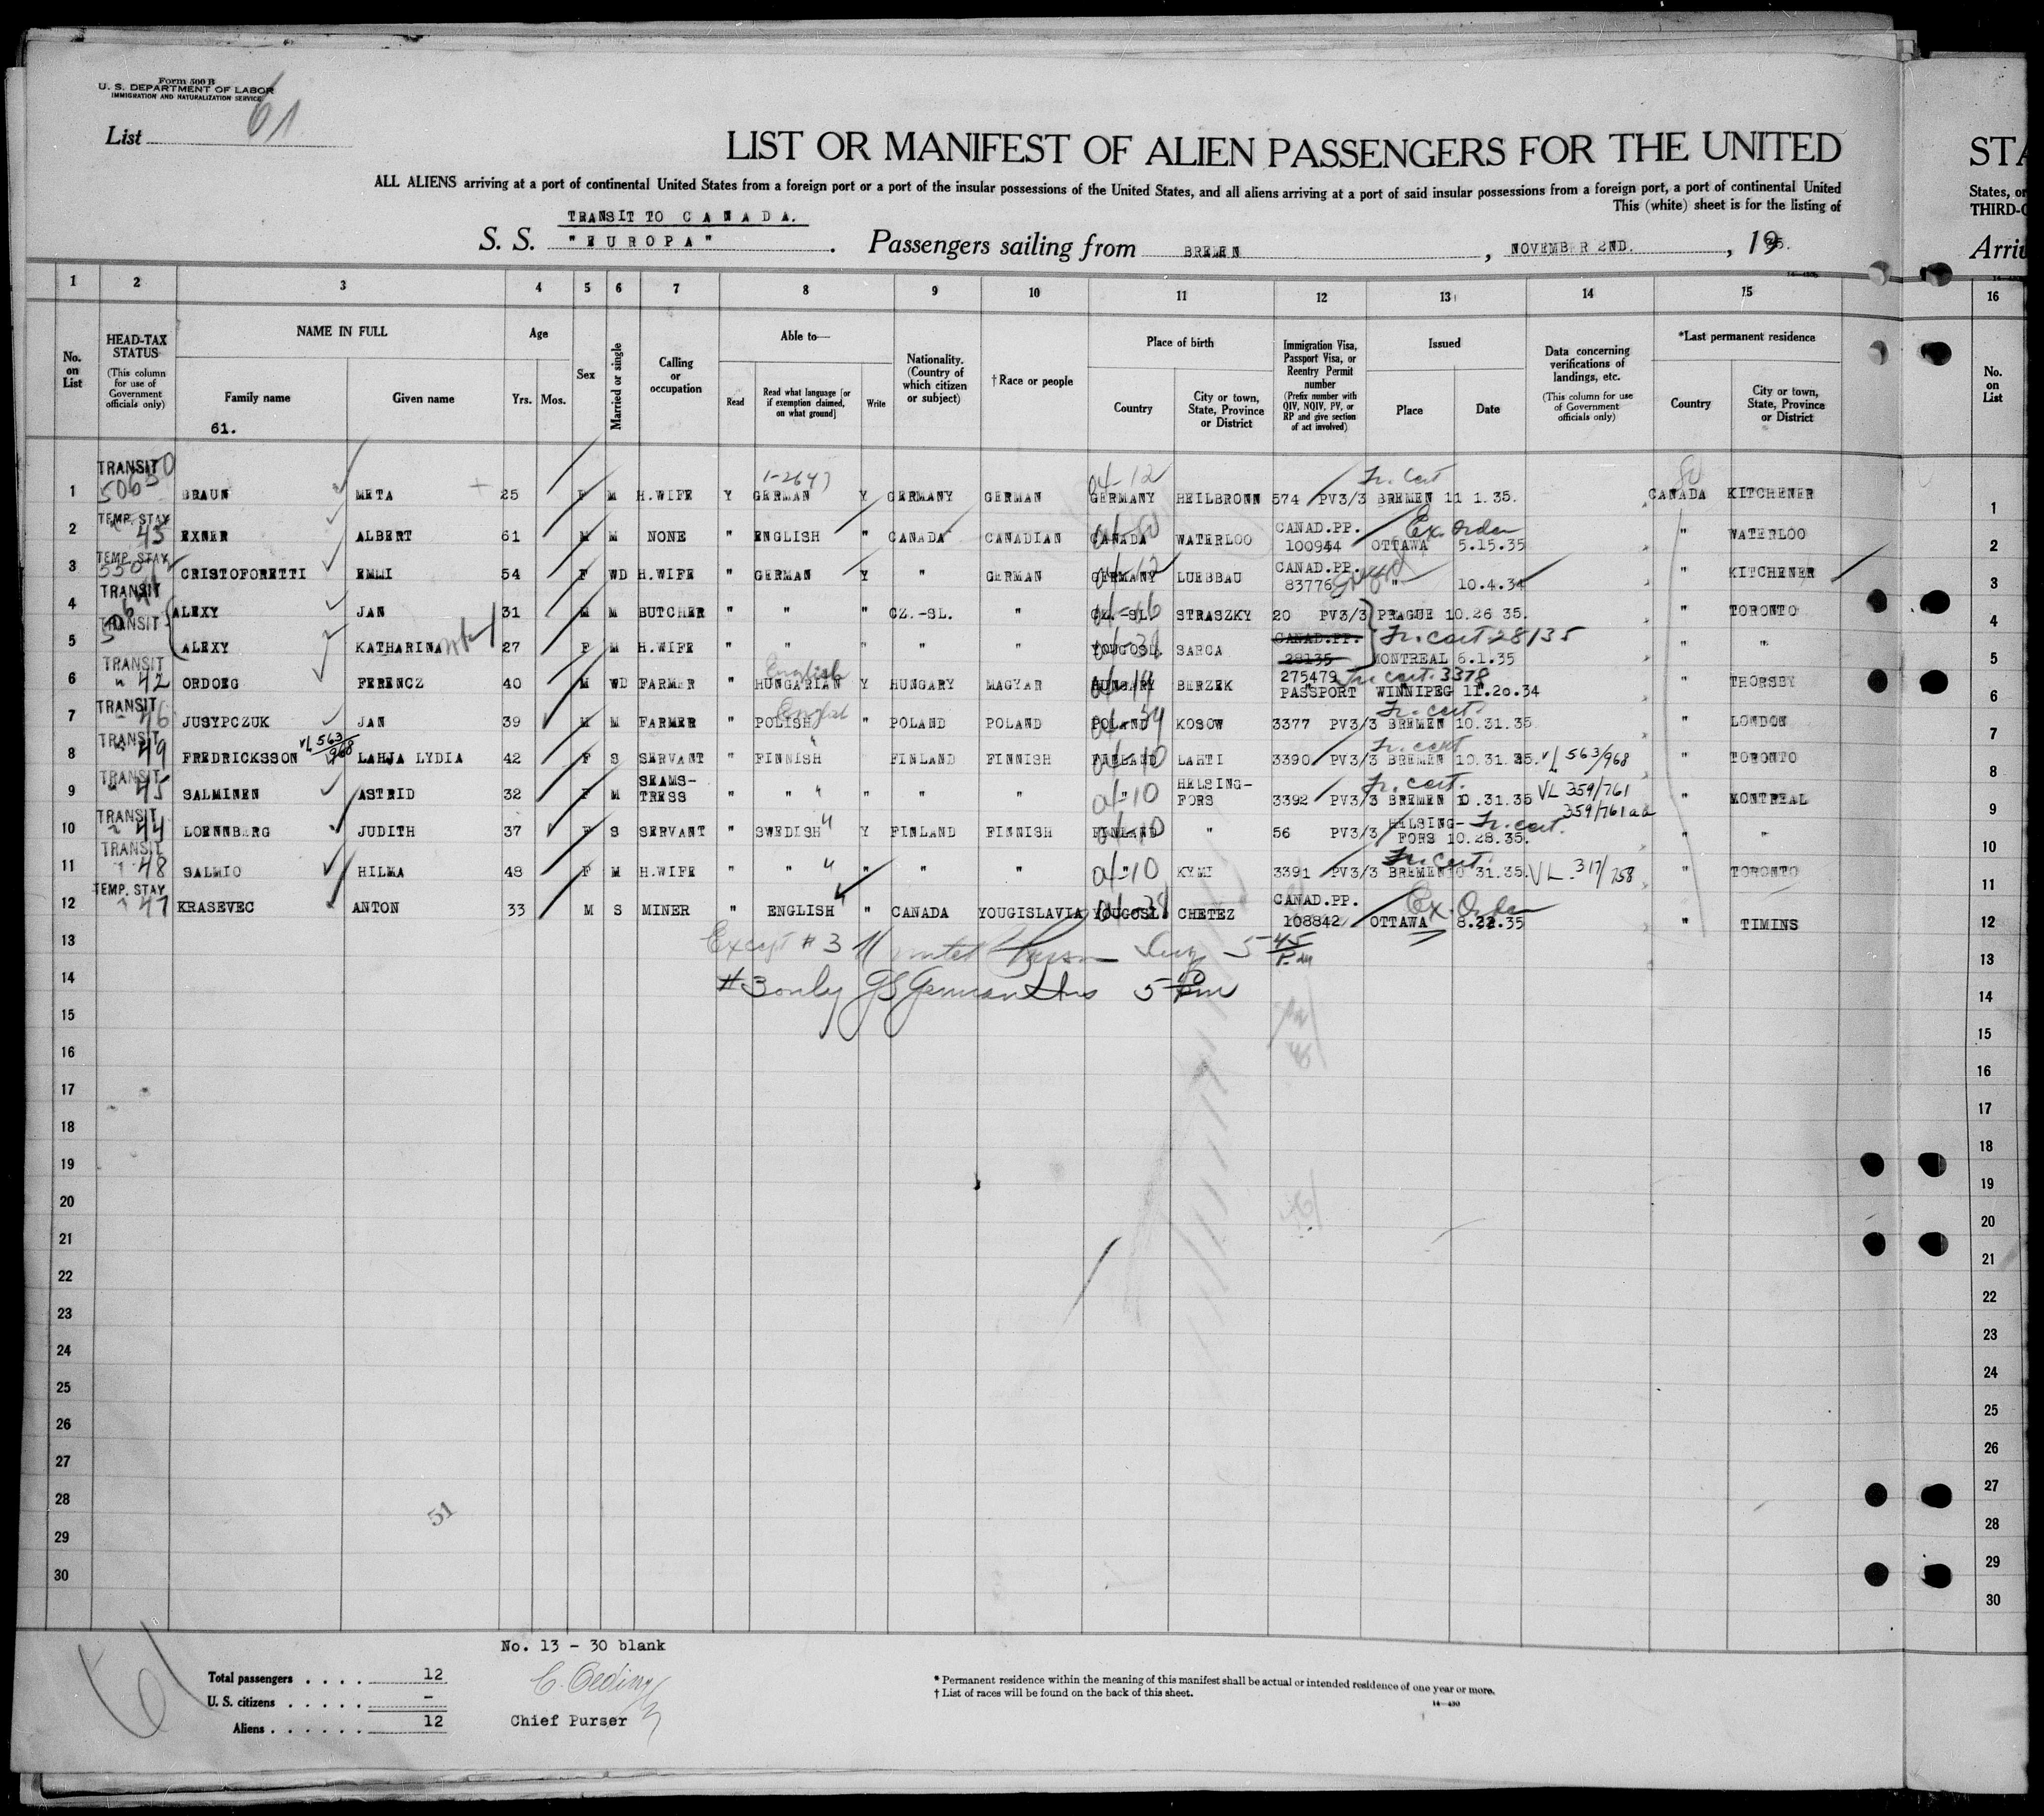 Form 500 B
U. S. DEPARTMENT OF LABOR
IMMIGRATION AND NATURALIZATION SERVICE
List 61
LIST OR MANIFEST OF ALIEN PASSENGERS FOR THE UNITED
STA
ALL ALIENS arriving at a port of continental United States from a foreign port or a port of the insular possessions of the United States, and all aliens arriving at a port of said insular possessions from a foreign port, a port of continental United
States, or
This (white) sheet is for the listing of
THIRD-C
TRANSIT TO CANADA.
S. S. "EUROPA". Passengers sailing from BREMEN, NOVEMBER 2ND., 1935.
Arriv
1 2 3 4 5 6 7 8 9 10 11 12 13 14 15 16
No. on List
HEAD-TAX STATUS (This column for use of Government officials only)
NAME IN FULL
Family name
Given name
61.
Age
Yrs. Mos.
Sex
Married or single
Calling or occupation
Able to—
Read
Read what language [or if exemption claimed, on what ground]
Write
Nationality. (Country of which citizen or subject)
†Race or people
Place of birth
Country
City or town, State, Province or District
Immigration Visa, Passport Visa, or Reentry Permit number (Prefix number with QIV, NQIV, PV, or RP and give section of act involved)
Issued
Place
Date
Data concerning verifications of landings, etc. (This column for use of Government officials only)
*Last permanent residence
Country
City or town, State, Province or District
No. on List
1 TRANSIT 50650 BRAUN META 25 F M H.WIFE Y GERMAN 1-2647 Y GERMANY GERMAN GERMANY 12 HEILBRONN 574 PV3/3 BREMEN 11 1.35. Tr. cert CANADA 80 KITCHENER 1
2 TEMP. STAY 43 EXNER ALBERT 61 M M NONE " ENGLISH " CANADA CANADIAN CANADA 80 WATERLOO CANAD.PP. 100944 OTTAWA 5.15.35 Ex. Order " WATERLOO 2
3 TEMP. STAY CRISTOFORETTI EMMI 54 F WD H.WIFE " GERMAN Y " GERMAN GERMANY 12 LUEBBAU CANAD.PP. 83776 " 10.4.34 " KITCHENER 3
4 TRANSIT ALEXY JAN 31 M M BUTCHER " " " CZ.-SL. " CZ.-SL. STRASZKY 20 PV3/3 PRAGUE 10.26 35. " TORONTO 4
5 TRANSIT ALEXY KATHARINA 27 F M H.WIFE " " " " " YOUGOSL. SARCA CANAD.PP. 28135 MONTREAL 6.1.35 Tr. cert 28135 " " 5
6 TRANSIT " 42 ORDOEG FERENCZ 40 M WD FARMER " HUNGARIAN English Y HUNGARY MAGYAR HUNGARY 14 BERZEK 275479 PASSPORT WINNIPEG 11.20.34 Tr. cert. 3378 " THORSBY 6
7 TRANSIT 46 JUSYPCZUK JAN 39 M M FARMER " POLISH English " POLAND POLAND POLAND KOSOW 3377 PV3/3 BREMEN 10.31.35. Tr. cert. " LONDON 7
8 TRANSIT 49 FREDRICKSSON VL 563/968 LAHJA LYDIA 42 F S SERVANT " FINNISH " FINLAND FINNISH FINLAND 10 LAHTI 3390 PV3/3 BREMEN 10.31.35. Tr. cert VL 563/968 " TORONTO 8
9 TRANSIT 45 SALMINEN ASTRID 32 F M SEAMS-TRESS " " " " " " 10 HELSING-FORS 3392 PV3/3 BREMEN 10.31.35 Tr. cert. VL 359/761 " MONTREAL 9
359/761aa
10 TRANSIT 44 LOENNBERG JUDITH 37 F S SERVANT " SWEDISH " Y FINLAND FINNISH FINLAND 10 " 56 PV3/3 HELSING-FORS 10.28.35. Tr. cert. " " 10
11 TRANSIT 48 SALMIO HILMA 48 F M H.WIFE " " " " " " " 10 KYMI 3391 PV3/3 BREMEN 10 31.35. Tr. cert. VL. 317/758 " TORONTO 11
12 TEMP. STAY 47 KRASEVEC ANTON 33 M S MINER " ENGLISH " CANADA YOUGISLAVIA YOUGOSL CHETEZ CANAD.PP. 108842 OTTAWA 8.22.35 Ex. Order " TIMINS 12
13 Except # 3 5 45 13
14 #3 only German 5 Pm 14
15 15
16 16
17 17
18 18
19 19
20 20
21 21
22 22
23 23
24 24
25 25
26 26
27 27
28 28
51
29 29
30 30
No. 13 - 30 blank
61
Total passengers . . . . 12
U. S. citizens . . . . . -
Aliens . . . . . . 12
C. Oeding
Chief Purser
* Permanent residence within the meaning of this manifest shall be actual or intended residence of one year or more.
† List of races will be found on the back of this sheet.
14—430